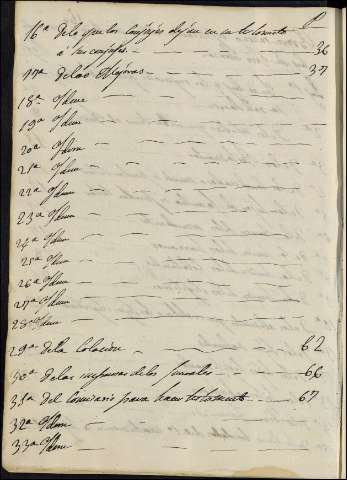 P
16ª de lo que los Conjuges dejan en su testamento
á sus consortes - 36
17ª de las Mejoras - 37
18ª Ydem
19ª Ydem
20ª Ydem
21ª Ydem
22ª Ydem
23ª Ydem
24ª Ydem
25ª Ydem
26ª Ydem
27ª Ydem
28ª Ydem
29ª de la Colacion - 62
30ª de las de los - 66
31ª del Comisario para hacer testamento - 67
32ª Ydem
33ª Ydem